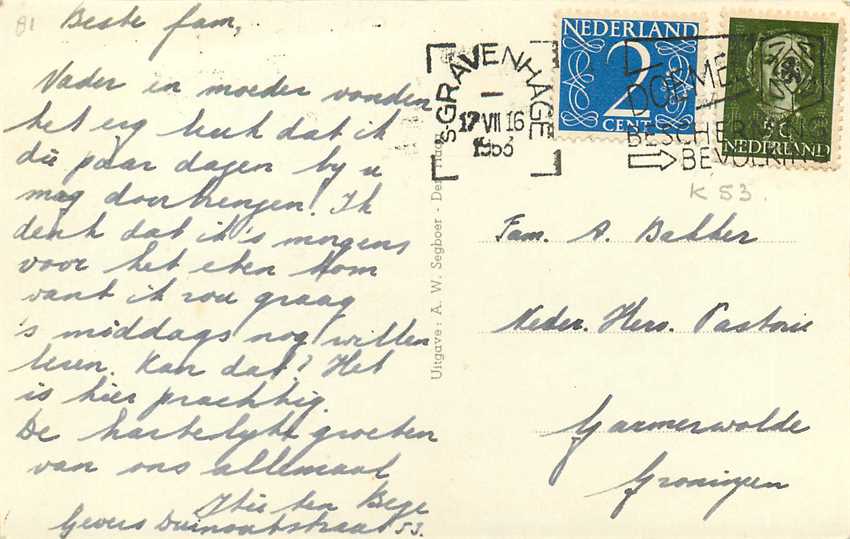 81
Beste fam,
Vader en moeder vonden
het erg leuk dat ik
die paar dagen by u
mag doorbrengen! Ik
denk dat ik 's morgens
voor het eten kom
want ik zou graag
's middags nog willen
leren. Kan dat? Het
is hier prachtig.
De hartelyke groeten
van ons allemaal
ten Bege
Gevers Deinootstraat 53.
Uitgave: A. W. Segboer - Den Haag
's-GRAVENHAGE
17 VII 16
1953
NEDERLAND
2
CENT
5 C
NEDERLAND
BESCHERMING
BEVOLKING
K 53.
Fam. A. Bakker
Neder. Herv. Pastorie
Garmerwolde
Groningen